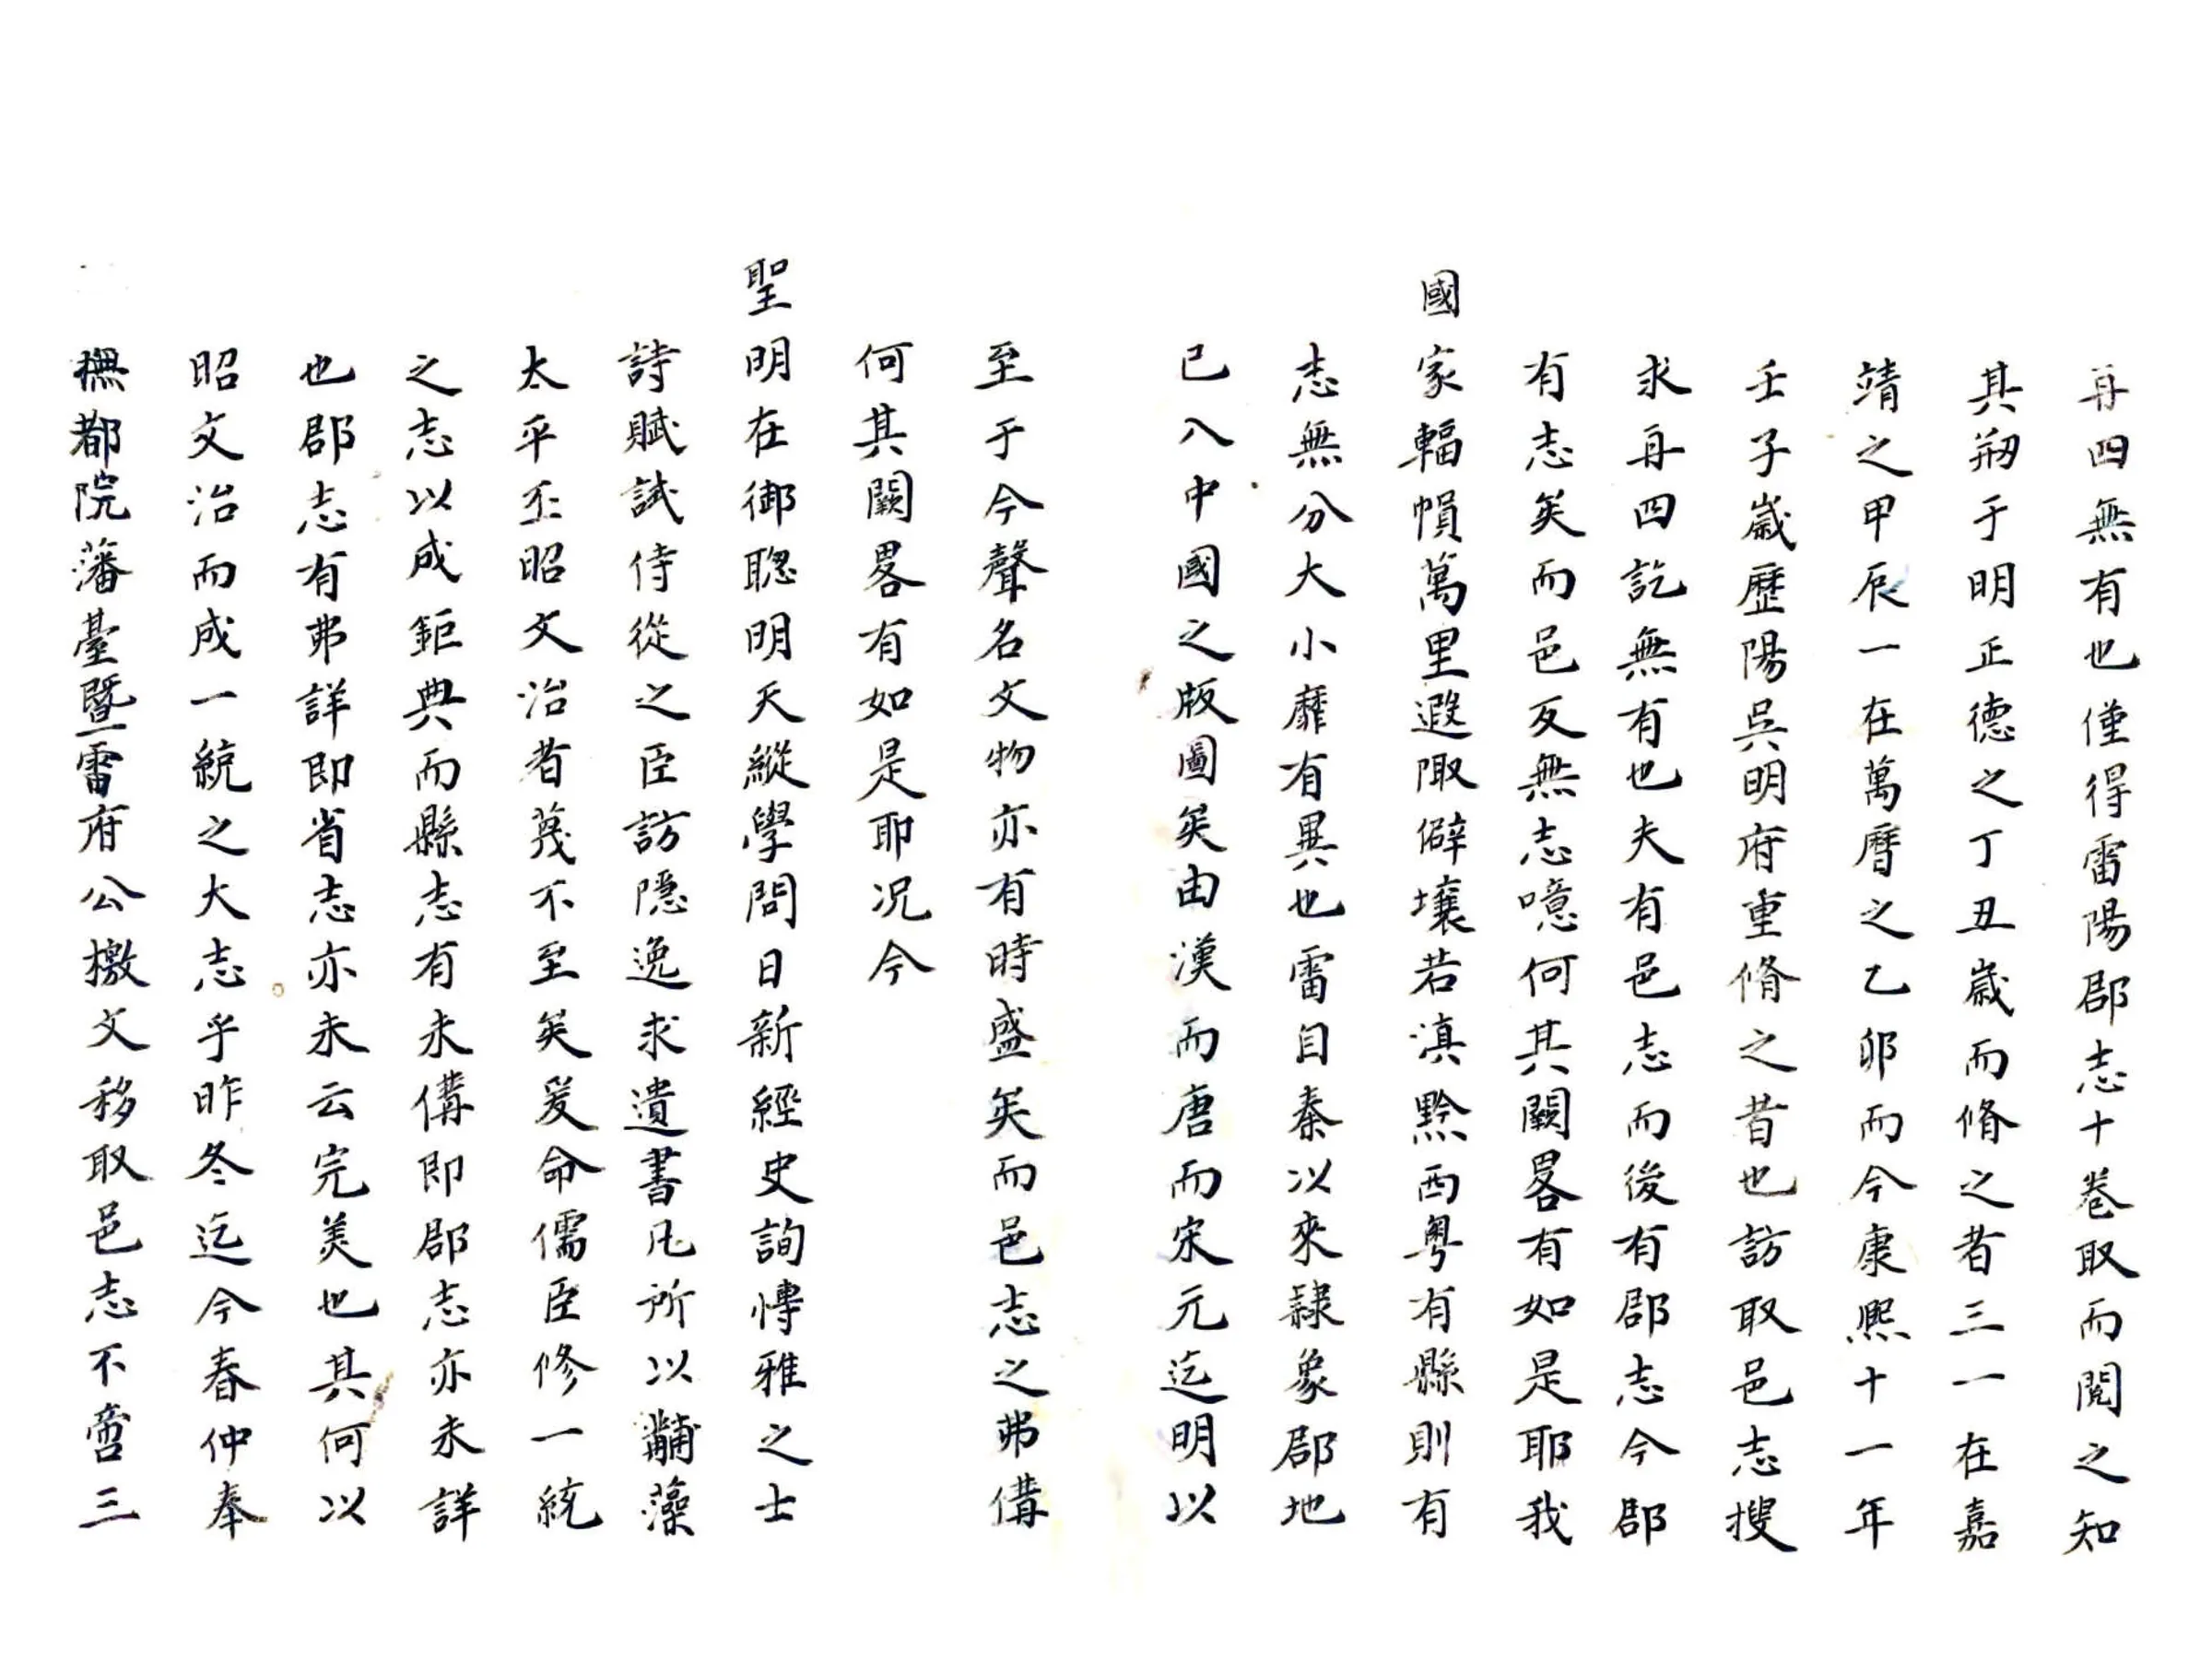 再四無有也僅得雷陽郡志十卷取而閱之知
其剏于明正德之丁丑歲而脩之者三一在嘉
靖之甲辰一在萬曆之乙卯而今康熙十一年
壬子歲歷陽吳明府重脩之昔也訪取邑志搜
求再四訖無有也夫有邑志而後有郡志今郡
有志矣而邑反無志噫何其闕畧有如是耶我
國家輻幀萬里遐陬僻壤若滇黔西粵有縣則有
志無分大小靡有異也雷自秦以來隸象郡地
已入中國之版圖矣由漢而唐而宋元迄明以
至于今聲名文物亦有時盛矣而邑志之弗備
何其闕畧有如是耶况今
聖明在御聰明天縱學問日新經史詢博雅之士
詩賦試侍從之臣訪隱逸求遺書凡所以黼藻
太平丕昭文治者蔑不至矣爰命儒臣修一統
之志以成鉅典而縣志有未備即郡志亦未詳
也郡志有弗詳即省志亦未云完美也其何以
昭文治而成一統之大志乎昨冬迄今春仲奉
撫都院藩臺暨雷府公檄文移取邑志不啻三